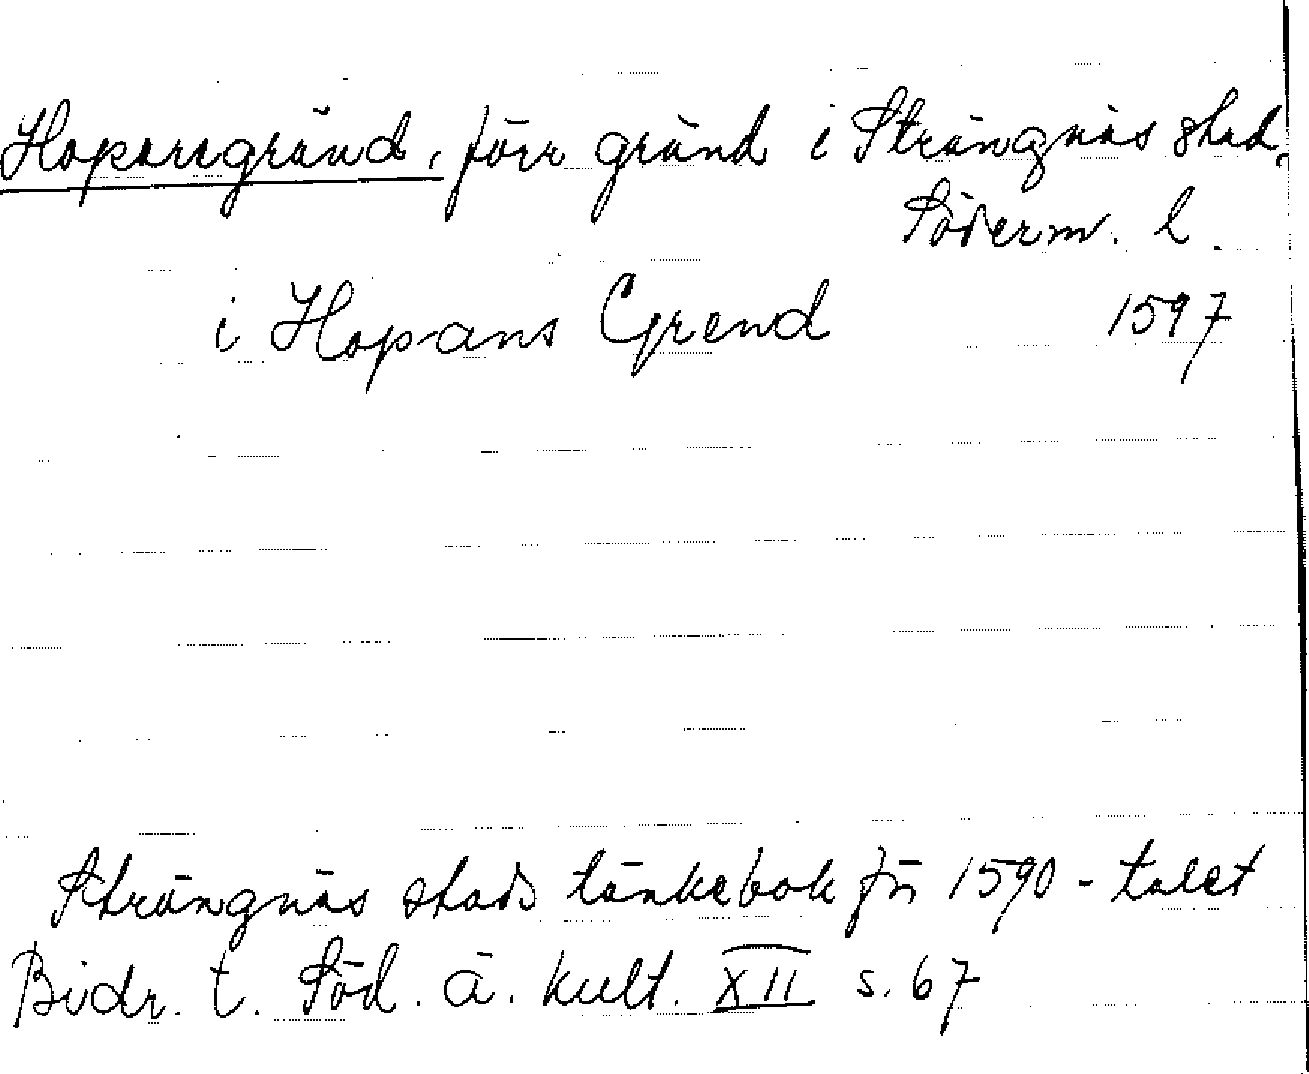 Hoparegränd, förr gränd i Strängnäs stad,
Söderm. l.
i Hopans Grend 1597
Strängnäs stads tänkebok för 1590-talet
Bidr. t. Söd. ä. kult. XII s. 67